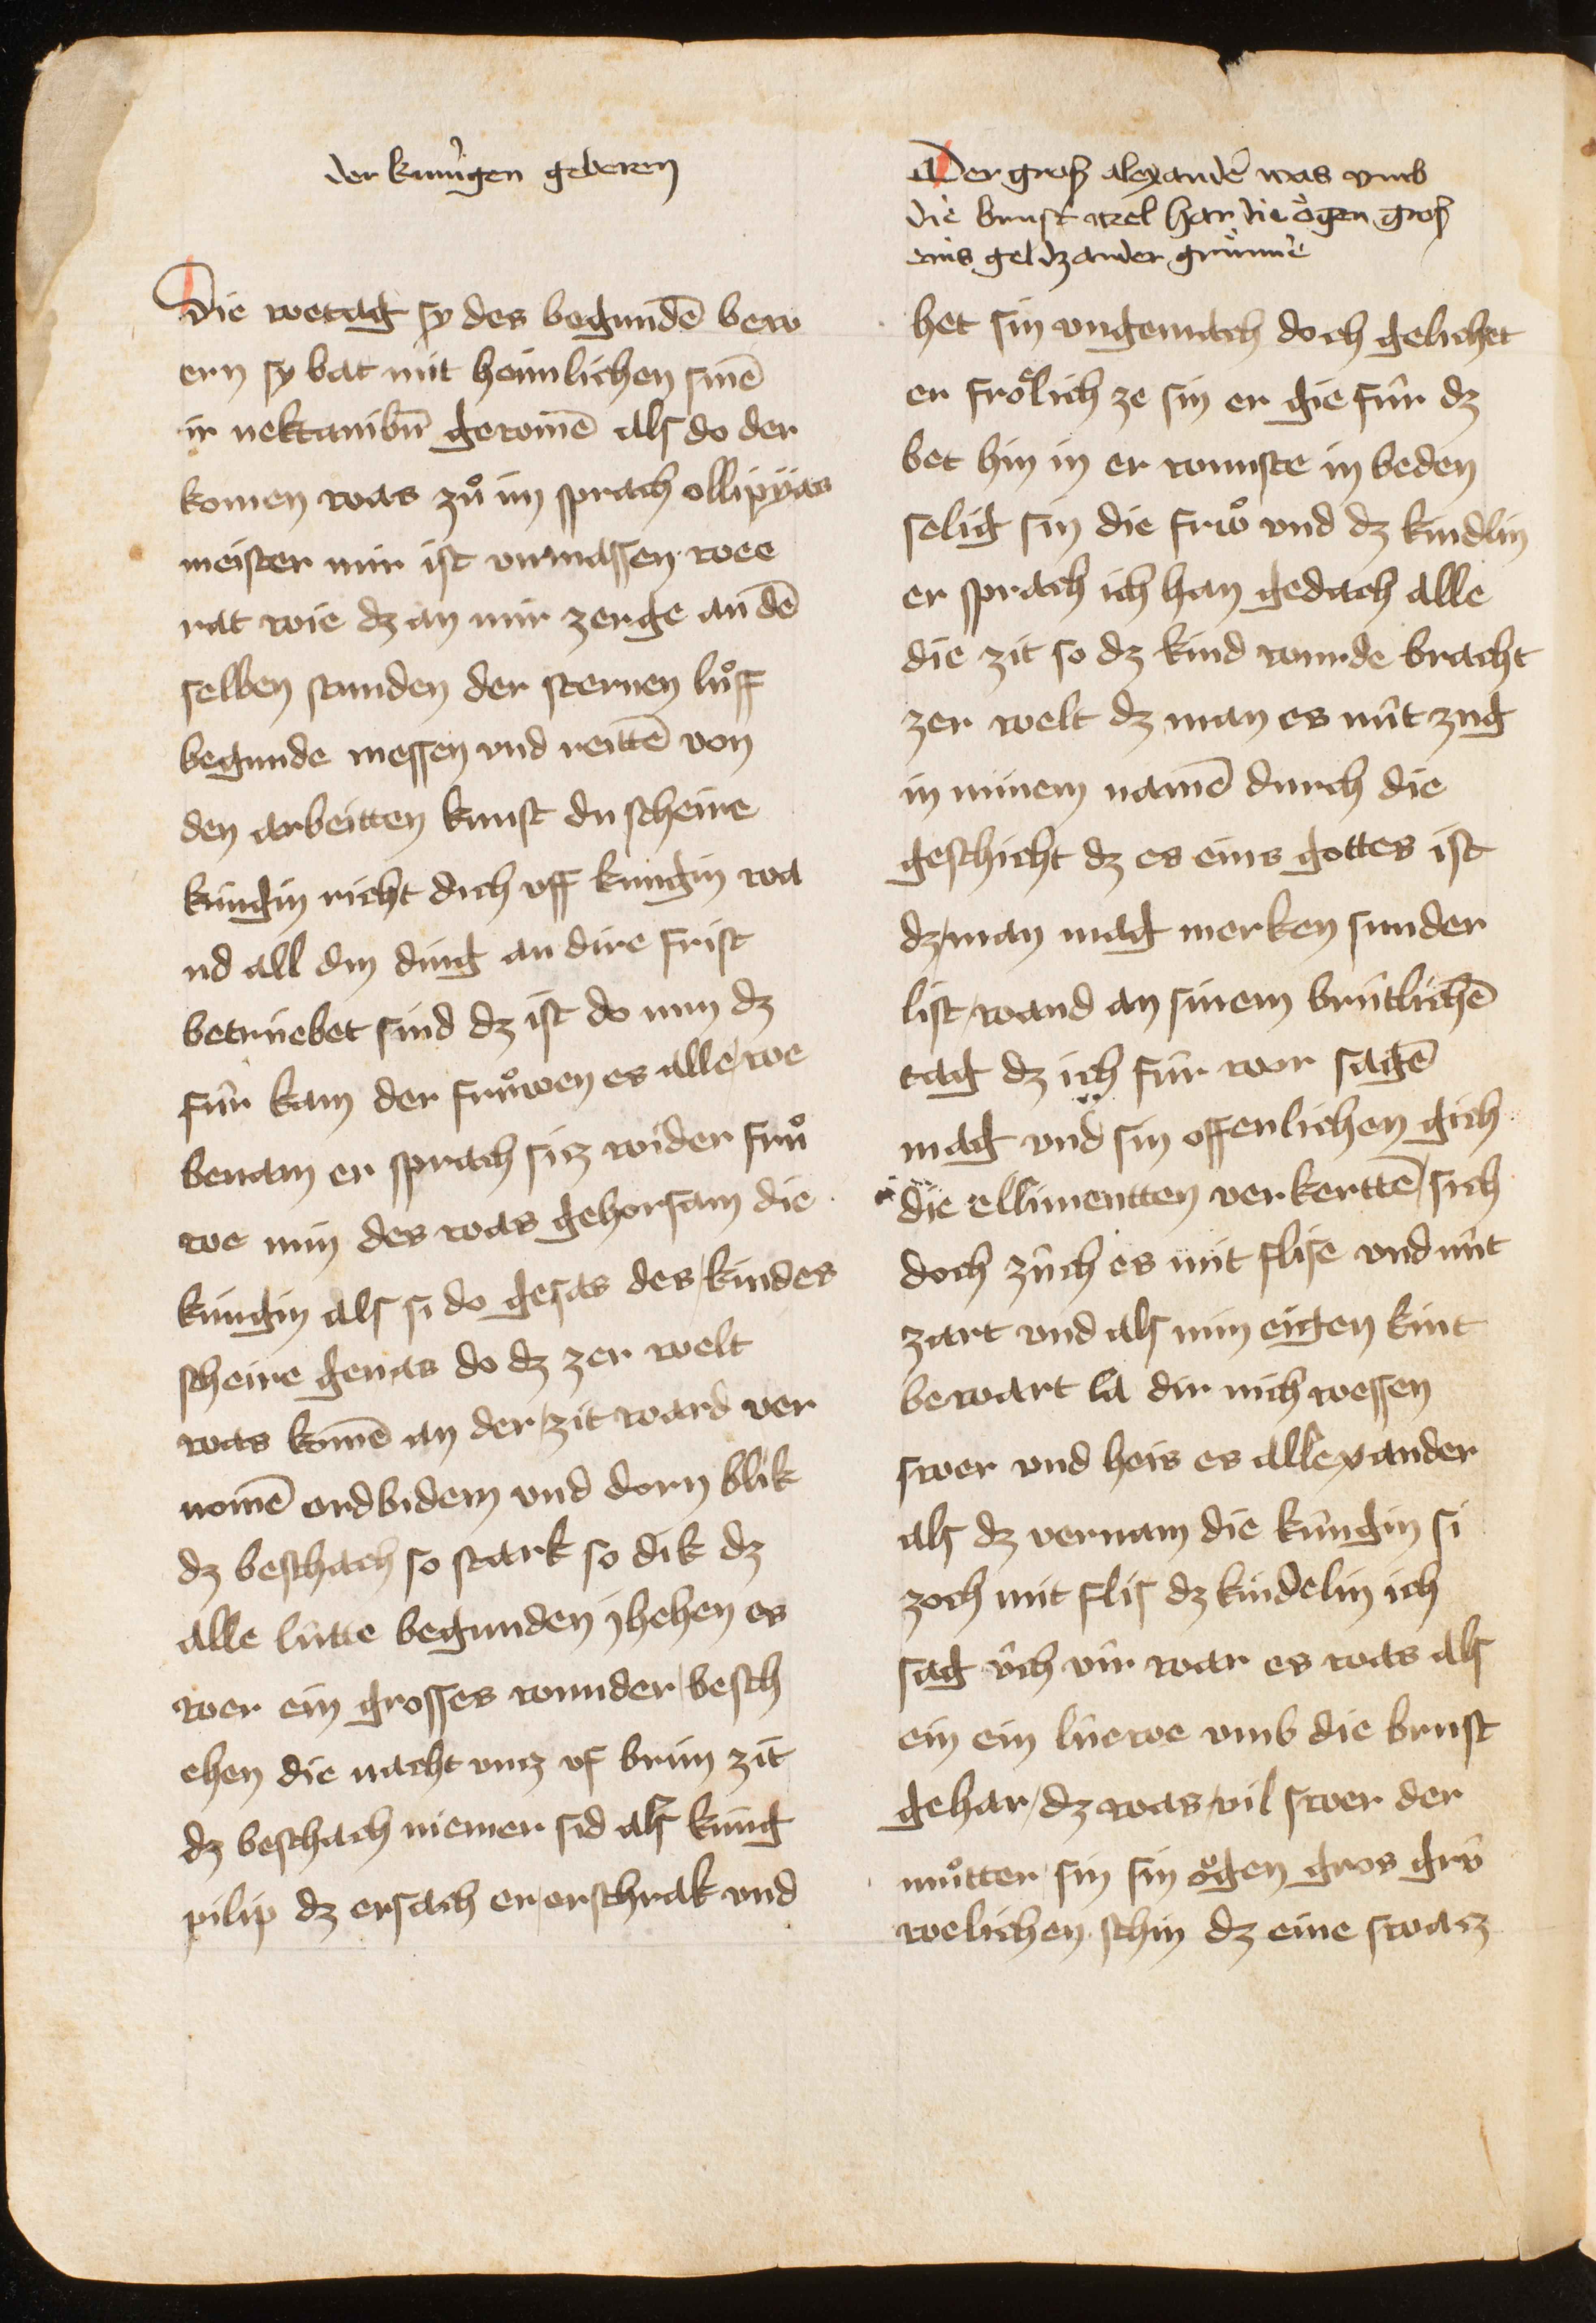 der kunigen geberen
Die wetag sy des begundē bew
ern sy bat mit heimlichen sinē
ir nektanibū gewinē als do der
komen was zuͦ im sprach ollipÿas
meister mir ist vnmassen wee
rat wie dz an mir zerge an dē
selben stunden der sternen luͦff
begunde messen vnd reittē von
den arbeitten kunst du scheine
kúngin richt dich vff kungin wa
nd all din ding an dire frist
betruebet sind dz ist do nun dz
fúr kam der fruͦwen es alle we
benam er sprach siz wider fruͦ
we min des was gehorsam die
kúngin als si do gesas des kindes
scheine genas do dz zer welt
was komē an der zit ward ver
nomē erdbidem vnd dorn blik
dz beschach so stark so dik dz
alle lútte begunden jhehen es
wer ein grosses wunder besch
ehen die nacht vnz vf brim zit
dz beschach niemer sid als kúng
pilip dz ersach er erschrak vnd
Der gross alexander was vmb
die brust wel har die oͤgen gross
eins gel dz ander gruͤnne
het sin vngemach doch gelichet
er froͤlich ze sin er gie fúr dz
bet hin in er wunste in beden
selig sin die frwͦ vnd dz kindlin
er sprach ich han gedach alle
die zit so dz kind wurde bracht
zer welt dz man es nút zug
in minem namē durch die
geschicht dz es eins gottes ist
dz man mag merken sunder
list wand an sinem brútlichē
tag dz ich fúr wor sagē
mag vnd sin offenlichen gich
die ellimentten verkerttē sich
doch zúch es mit flise vnd mit
zart vnd als min eigen kint
bewart la dir nich wessen
swer vnd heis es allexander
als dz vernam die kúngin si
zoch mit flis dz kindelin ich
sag úch vúr war es was als
ein ein lúewe vmb die brust
gehar dz was vil swer der
muͦtter sin sin oͤgen gros grú
welichen schin dz eine swarz